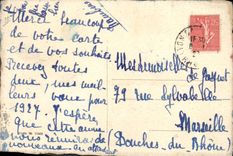 Merci beaucoup
de votre carte
et de vos souhaits
Recevez toutes
deux, mes meil
leurs vœux pour
1927. J'espère
que cette année
nous réunira de
nouveau en
Mesdemoiselles
de
79 rue Sylvabelle
Marseille
(Bouches du Rhône)